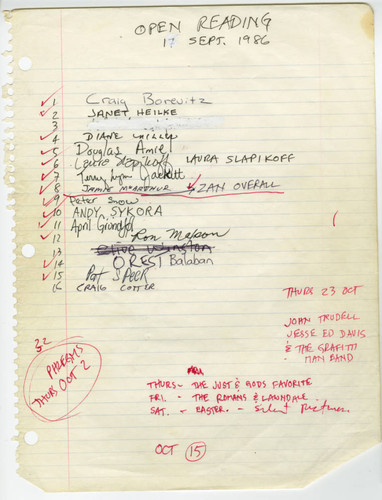 OPEN READING
17 SEPT. 1986
1 Craig Borevitz
2 JANET HEILKE
3
4 DIANE
5 Douglas Amie
6 Laurie Slapikoff LAURA SLAPIKOFF
7 Terry Lynn
8 ZAN OVERALL
9 Peter Snow
10 ANDY SYKORA
11 April
12 Ron
13
14 OREST Balaban
15 Pat SPEER
16 CRAIG COTTER
THURS 23 OCT
JOHN TRUDELL
JESSE ED DAVIS
& THE GRAFITTI
MAN BAND
32
THURS OCT 2
THURS - THE JUST & GODS FAVORITE
FRI. - THE ROMANS & LAWNDALE
SAT. - EASTER. -
OCT 15